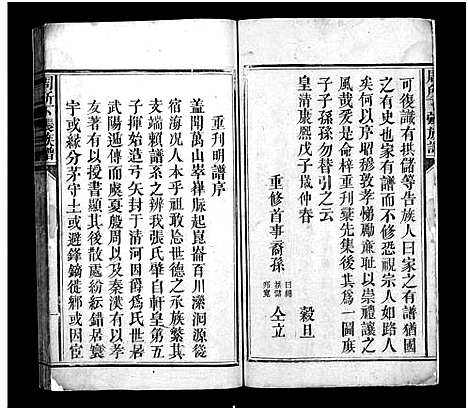 可復識有拱儲等告族人曰家之有譜猶國
之有史也家有譜而不修恐視宗人如路人
矣何以序昭穆敦孝悌勵廉耻以崇禮讓之
風哉爰是命梓重刊彙先集後其為一圖族
子子孫孫勿替引之云
皇清康熙戊子歲仲春 穀旦
重修首事裔孫 仝立
重刊明譜序
蓋聞萬山峷嵂脈起崑崙百川濚洄源從
宿海况人本乎祖敢怠世德之承族繁其
支端賴譜系之辨我張氏肇自軒皇第五
子揮始造弓矢封于清河因爵為氏世居
武陽迤傳而虞夏殷周以及秦漢有以孝
友著有以授書顯其後散處紛紜錯居寰
宇或緣分茅守土或避鋒鏑徙鄉或因宦